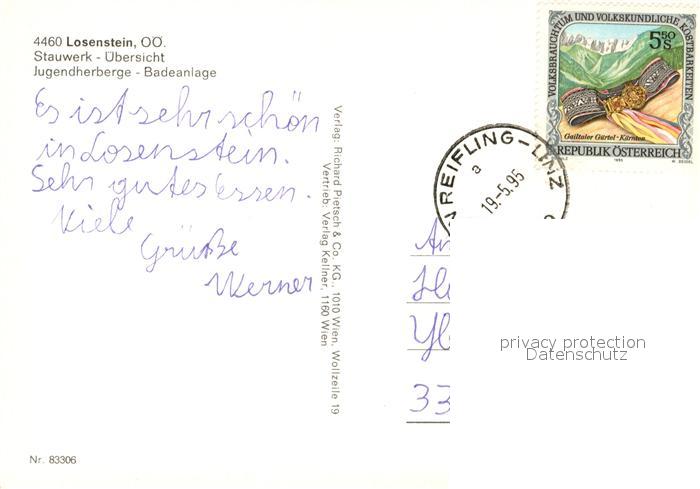 4460 Losenstein, OÖ.
Stauwerk - Übersicht
Jugendherberge - Badeanlage
Es ist sehr schön
in Losenstein.
Sehr gutes Essen.
Viele
Grüße
Werner
Nr. 83306
Verlag: Richard Pietsch & Co. KG., 1010 Wien, Wollzeile 19
Vertrieb: Verlag Kellner, 1160 Wien
VOLKSBRAUCHTUM UND VOLKSKUNDLICHE KOSTBARKEITEN
5.50 S
Gailtaler Gürtel-Kärnten
REPUBLIK ÖSTERREICH
1995
AREIFLING-LINZ
a
19.-5.95
An
33
privacy protection
Datenschutz